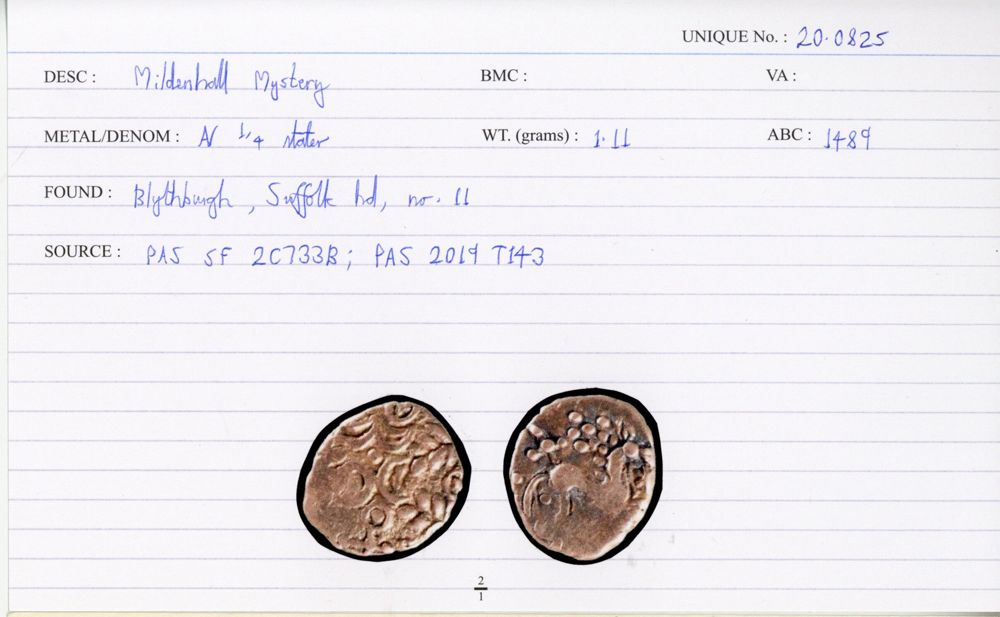 UNIQUE No. : 20.0825
DESC : Mildenhall Mystery BMC : VA :
METAL/DENOM : AV 1/4 stater WT. (grams) : 1.11 ABC : 1489
FOUND : Blythburgh, Suffolk hd, no. 11
SOURCE : PAS SF 2C733B; PAS 2019 T143
2
1